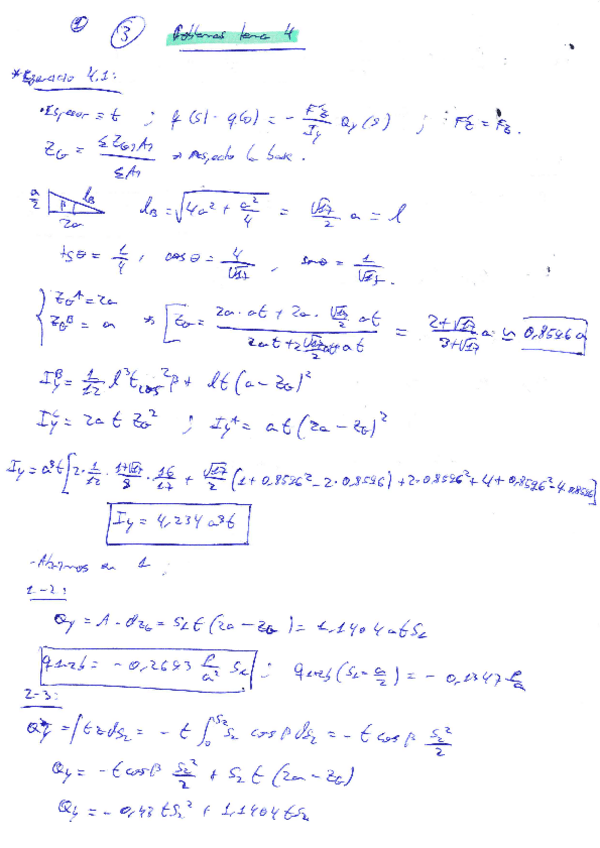 ① ③ Problemas tema 4
* Ejercicio 4.1:
• Espesor = t ; q(s) - q(0) = - Fz/Iy Qy(s) ; Fz = Fz.
ZG = ΣZGi Ai / ΣAi → respecto la base.
a/2 β lB 2a lB = √(4a² + a²/4) = √17/2 a = l
tgθ = 1/4 , cosθ = 4/√17 , senθ = 1/√17.
{ ZG^A = 2a
ZG^B = a → [ ZG = (2a · at + 2a · √17/2 at) / (2at + 2 √17/2 at + at) = (2+√17)/(3+√17) a ≈ 0,8596 a
Iy^B = 1/12 l³t cos²β + lt (a - ZG)²
Iy^C = 2a t ZG² ; Iy^A = at (2a - ZG)²
Iy = a³t [2 · 1/12 · 17√17/8 · 16/17 + √17/2 (1 + 0,8596² - 2 · 0,8596) + 2 · 0,8596² + 4 + 0,8596² - 4 · 0,8596]
Iy = 4,234 a³t
- Abrimos en 1 ;
1-2:
Qy = A · dZG = S1 t (2a - ZG) = 1,1404 at S1
q12b = - 0,2693 P/a² S1 ; q12b (S1 = a/2) = - 0,1347 P/a
2-3:
Qy = ∫ t z dS2 = - t ∫₀^S2 S2 cosβ dS2 = - t cosβ S2²/2
Qy = - t cosβ S2²/2 + S2 t (2a - ZG)
Qy = - 0,43 tS2² + 1,1404 tS2